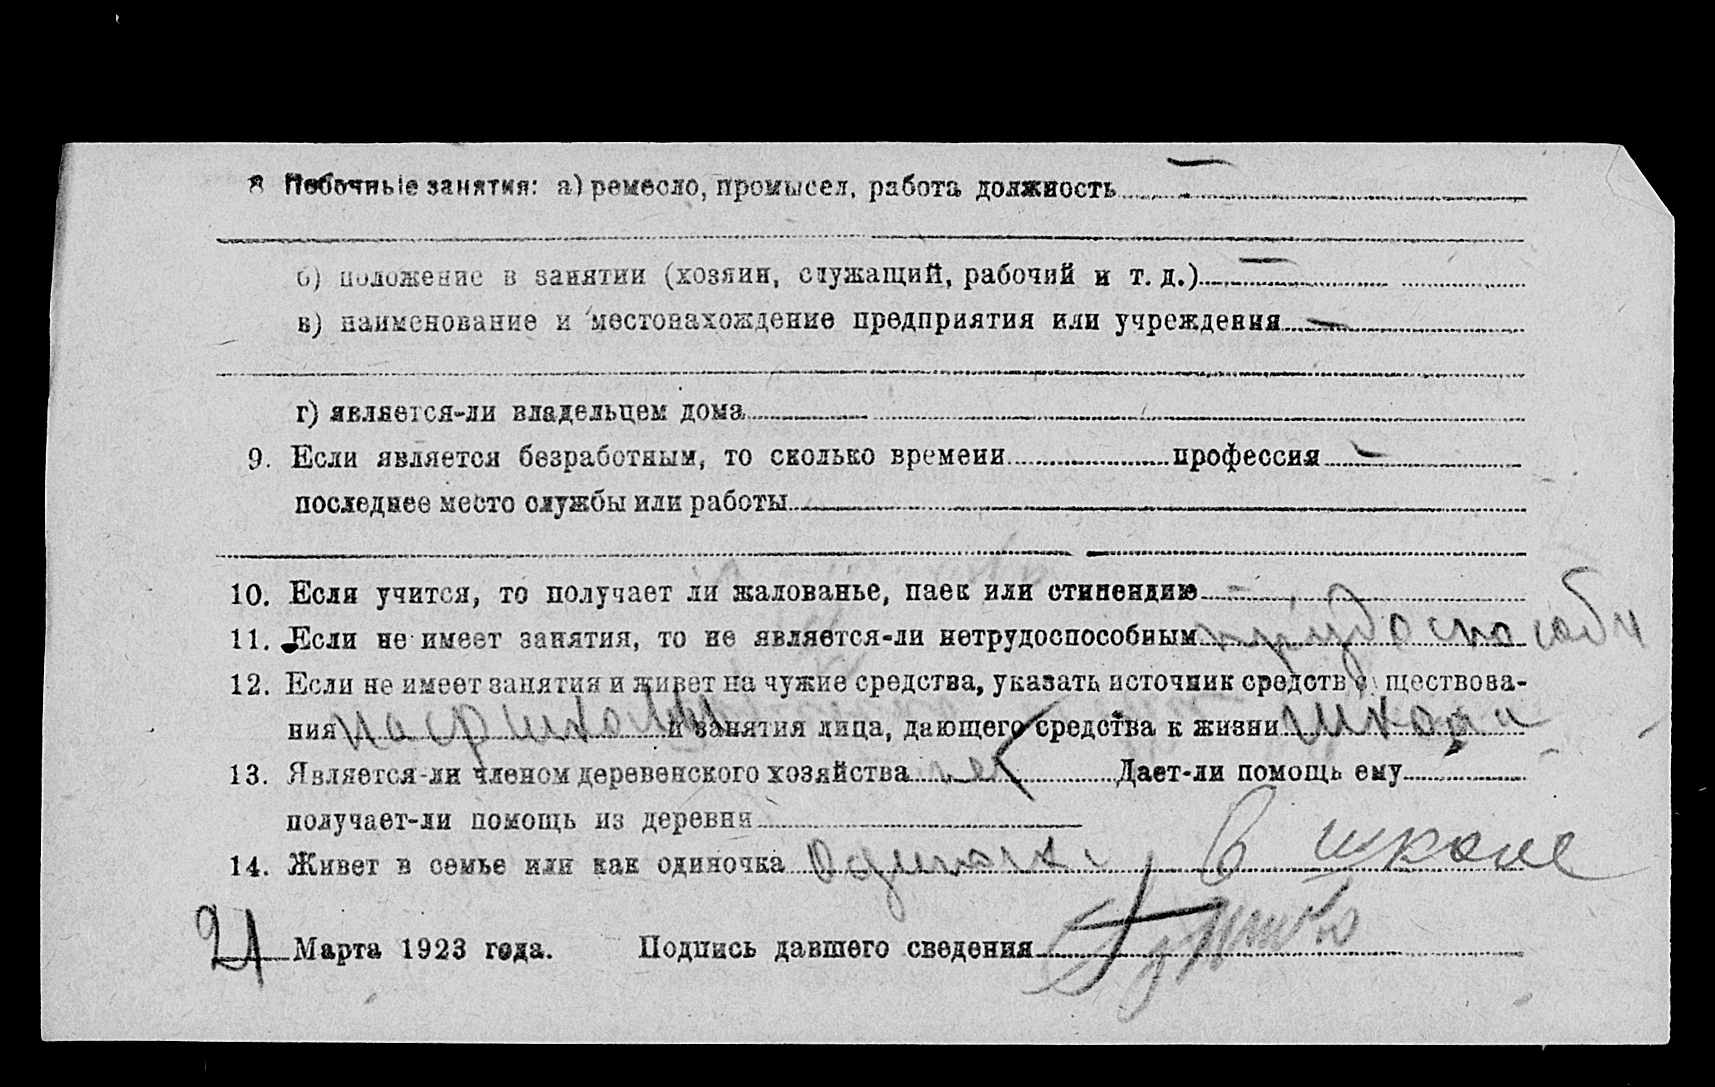 8 Побочные занятия: а) ремесло, промысел, работа должность —
б) положение в занятии (хозяин, служащий, рабочий и т. д.) —
в) наименование и местонахождение предприятия или учреждения —
г) является-ли владельцем дома
9. Если является безработным, то сколько времени профессия —
последнее место службы или работы
10. Если учится, то получает ли жалованье, паек или стипендию —
11. Если не имеет занятия, то не является-ли нетрудоспособным
12. Если не имеет занятия и живет на чужие средства, указать источник средств существова-
ния и занятия лица, дающего средства к жизни
13. Является-ли членом деревенского хозяйства нет Дает-ли помощь ему
получает-ли помощь из деревни
14. Живет в семье или как одиночка в школе
21 Марта 1923 года. Подпись давшего сведения